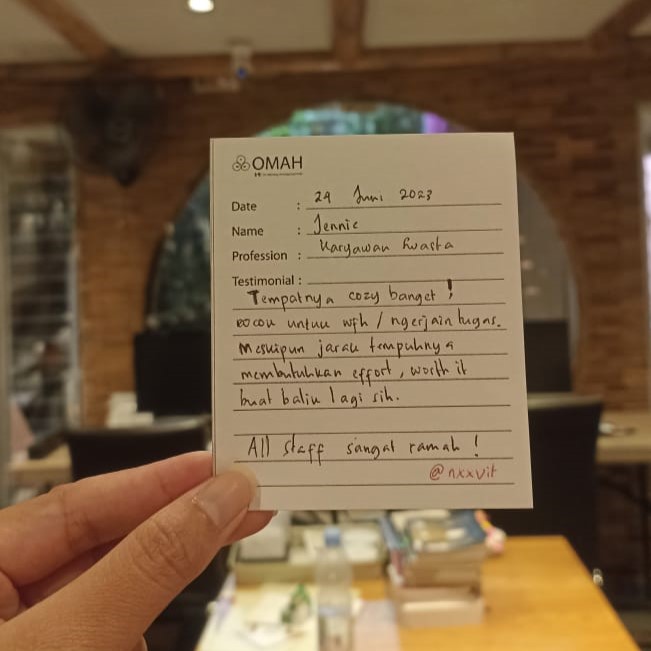 OMAH
Date : 24 Juni 2023
Name : Jennie
Profession : Karyawan Swasta
Testimonial :
Tempatnya cozy banget!
cocok untuk wfh / ngerjain tugas.
Meskipun jarak tempuhnya
membutuhkan effort, worth it
buat balik lagi sih.
All staff sangat ramah!
@nxxvit